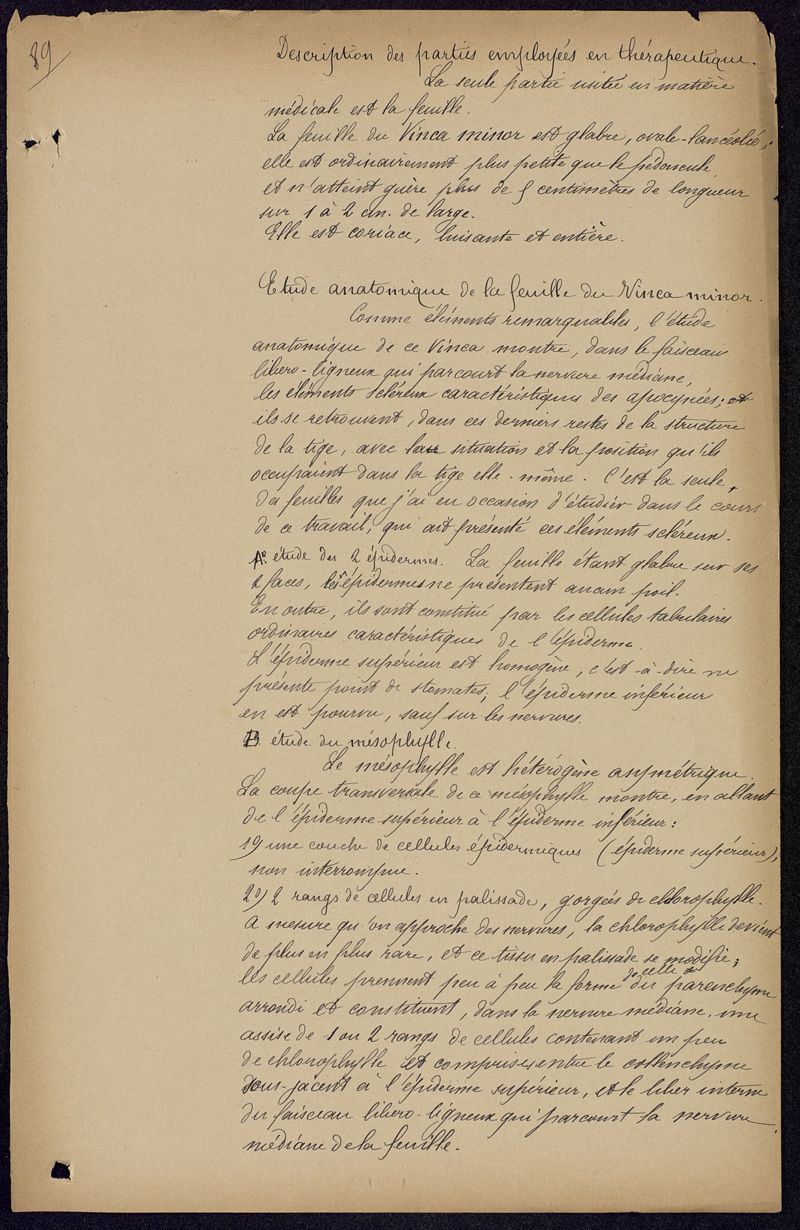 89
Description des parties employées en thérapeutique.
La seule partie usitée en matière
médicale est la feuille.
La feuille du Vinca minor est glabre, ovale-lancéolée;
elle est ordinairement plus petite que le pédoncule
et n'atteint guère plus de 5 centimètres de longueur
sur 1 à 2 cm. de large.
Elle est coriace, luisante et entière.
Etude anatomique de la feuille du Vinca minor.
Comme éléments remarquables, l'étude
anatomique de ce Vinca montre, dans le faisceau
libero-ligneux qui parcourt la nervure médiane,
les éléments scléreux caractéristiques des apocynées; et
ils se retrouvent, dans ces derniers restes de la structure
de la tige, avec la situation et la position qu'ils
occupaient dans la tige elle-même. C'est la seule,
des feuilles que j'ai eu occasion d'étudier dans le cours
de ce travail, qui ait présenté ces éléments scléreux.
A° étude des 2 épidermes. La feuille étant glabre sur ses
2 faces, les épidermes ne présentent aucun poil.
En outre, ils sont constitué par les cellules tabulaires
ordinaires caractéristiques de l'épiderme.
L'épiderme supérieur est homogène, c'est-à-dire ne
présente point de stomates, l'épiderme inférieur
en est pourvu, sauf sur les nervures.
B étude du mésophylle.
Le mésophylle est hétérogène asymétrique.
La coupe transversale de ce mésophylle montre, en allant
de l'épiderme supérieur à l'épiderme inférieur:
1°) une couche de cellules épidermiques (épiderme supérieur),
non interrompue.
2°) 2 rangs de cellules en palissade, gorgées de chlorophylle.
A mesure qu'on approche des nervures, la chlorophylle devient
de plus en plus rare, et ce tissu en palissade se modifie;
les cellules prennent peu à peu la forme de celle du parenchyme
arrondi et constituent, dans la nervure médiane, une
assise de 1 ou 2 rangs de cellules contenant un peu
de chlorophylle et comprises entre le collenchyme
sous-jacent à l'épiderme supérieur, et le liber interne
du faisceau libero-ligneux qui parcourt la nervure
médiane de la feuille.